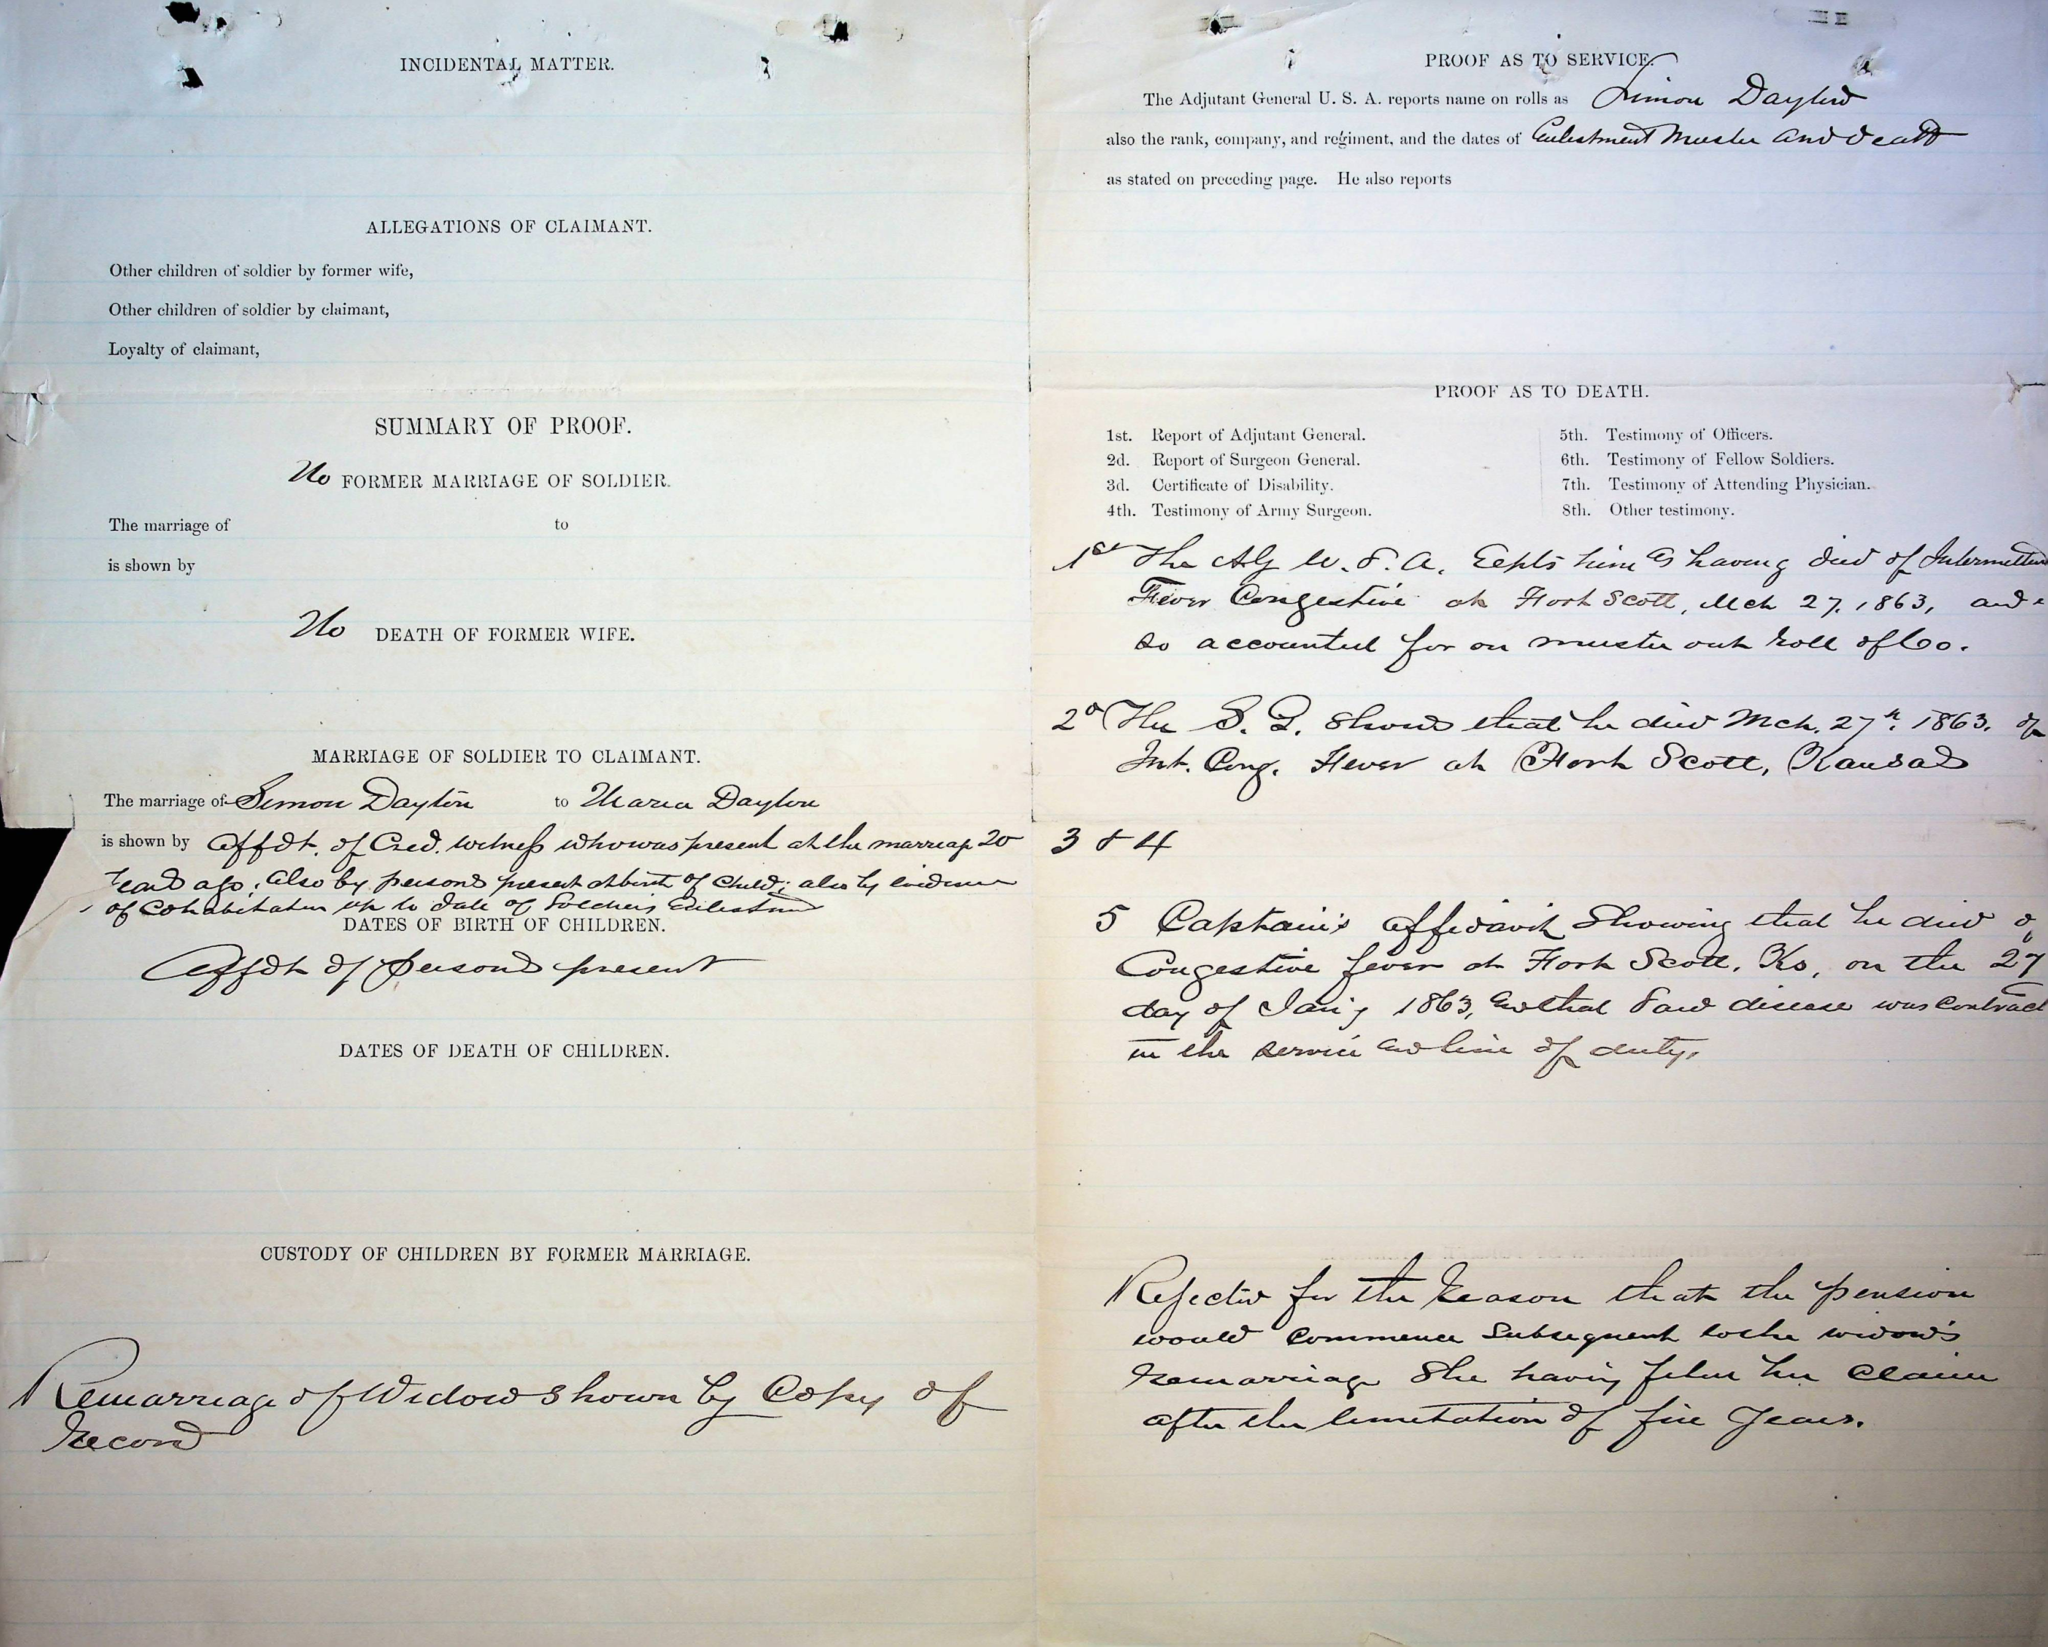 INCIDENTAL MATTER.
ALLEGATIONS OF CLAIMANT.
Other children of soldier by former wife,
Other children of soldier by claimant,
Loyalty of claimant,
SUMMARY OF PROOF.
No FORMER MARRIAGE OF SOLDIER.
The marriage of to
is shown by
No DEATH OF FORMER WIFE.
MARRIAGE OF SOLDIER TO CLAIMANT.
The marriage of Simon Dayton to Maria Dayton
is shown by Affdt. of Cred. witness who was present at the marriage 20
years ago; also by persons present at birth of child; also by evidence
of cohabitation up to date of Soldiers Enlestment
DATES OF BIRTH OF CHILDREN.
Affdt of persons present
DATES OF DEATH OF CHILDREN.
CUSTODY OF CHILDREN BY FORMER MARRIAGE.
Remarriage of Widow shown by Copy of
Record
PROOF AS TO SERVICE.
The Adjutant General U. S. A. reports name on rolls as Simon Dayton
also the rank, company, and regiment, and the dates of Enlestment Muster and death
as stated on preceding page. He also reports
PROOF AS TO DEATH.
1st. Report of Adjutant General.
2d. Report of Surgeon General.
3d. Certificate of Disability.
4th. Testimony of Army Surgeon.
5th. Testimony of Officers.
6th. Testimony of Fellow Soldiers.
7th. Testimony of Attending Physician.
8th. Other testimony.
1st The AG U. S. A. Repts him as having died of Intermittent
Fever Congestive at Fort Scott, Mch 27, 1863, and
so accounted for on muster out roll of Co.
2d The S. G. shows that he died Mch. 27th. 1863. of
Int. Cong. Fever at Fort Scott, Kansas
3 & 4
5 Captain's affidavit showing that he died o
Congestive fever at Fort Scott, Ks, on the 27
day of Jan'y 1863, and that said disease was contract
in the service and line of duty.
Rejected for the reason that the pension
would commence subsequent to the widow's
remarriage she having filed her claim
after the limitation of five years.